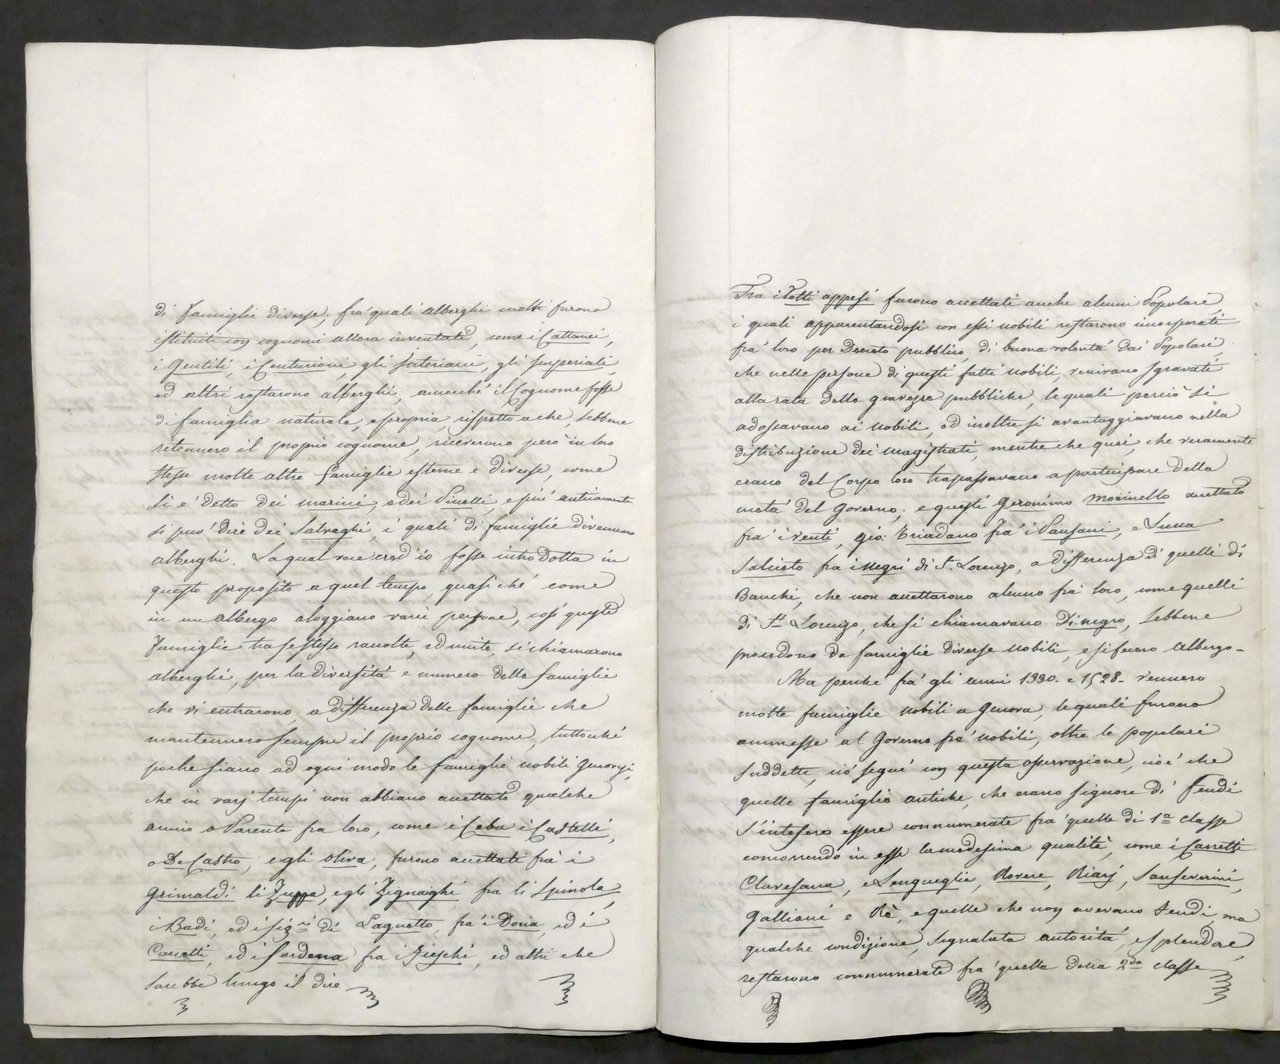 di Famiglie diverse, fra quali alberghi molti furono
istituiti con cognomi allora inventati, come i Cattanei,
i Gentili, i Centurioni gli Interiani, gli Imperiali,
ed altri restarono alberghi, ancorché il Cognome fosse
di famiglia naturale, e propria rispetto a che, sebbene
ritennero il proprio cognome, riceverono però in loro
stessi molte altre famiglie esterne e diverse, come
si è detto dei marini, e dei Pinelli e più anticamente
si puo' dire dei Salvaghi, i quali di famiglie divennero
alberghi. La qual voce cred' io fosse introdotta in
questo proposito a quel tempo, quasi ché come
in un albergo alogiano varie persone, così queste
Famiglie tra se stesse raccolte, ed unite, si chiamarono
alberghi, per la diversità e numero delle famiglie
che vi entrarono, a differenza delle famiglie che
mantennero sempre il proprio cognome, tuttoché
poche siano ad ogni modo le famiglie nobili Genovesi,
che in varj tempi non abbiano accettato qualche
amico o Parente fra loro, come i Ceba i Castelli,
o De Castro, e gli Oliva, furono accettati frà i
Grimaldi li Zuppa, e gli Zignaighi fra li Spinola,
i Badi, ed i sig.i di Lagneto, fra' i Doria, ed i
Casretti, ed i Sardena fra i Fieschi, ed altri che
sarebbe lungo il dire
Tra i Totti appesi furono accettati anche alcuni Popolari
i quali apparentandosi con essi nobili restarono incorporati
fra' loro per Decreto pubblico, di buona volontà dai Popolari
che nelle persone di questi fatti nobili, venivano sgravati
alla rata delle gravezze pubbliche, le quali perciò si
adossavano ai nobili, ed inoltre si avantaggiavano nella
distribuzione dei magistrati, mentre che quei, che veramente
erano del Corpo loro trapassavano a participare della
metà del Governo; e questi Geronimo Morinello accettato
fra' i venti, gio: Briadano fra' i Pansani, e Lucca
Saliceto fra i Negri di S. Lorenzo, a differenza di quelli di
Banchi, che non accettarono alcuno fra loro, come quelli
di S.t Lorenzo, che si chiamavano Di negro, sebbene
procedono da famiglie diverse nobili, e si fecero Albergo -
Ma perché fra' gli anni 1330. e 1528 - vennero
molte famiglie nobili a Genova, le quali furono
ammesse al Governo fra' nobili, oltre le popolari
suddette, ciò seguì con questa osservazione, cioè che
quelle famiglie antiche, che erano signore di Feudi
s'intesero essere connumerate fra' quelle di 1a classe
concorrendo in esse la medesima qualità, come i Carretti
Clavesana, e Lengueglia, Rovere, Riarj, Sanseverini,
Galliani e Rè, e quelle che non avevano Feudi ma
qualche condizione, segnalata autorità, e splendore,
restarono connumerate fra' quella della 2da classe